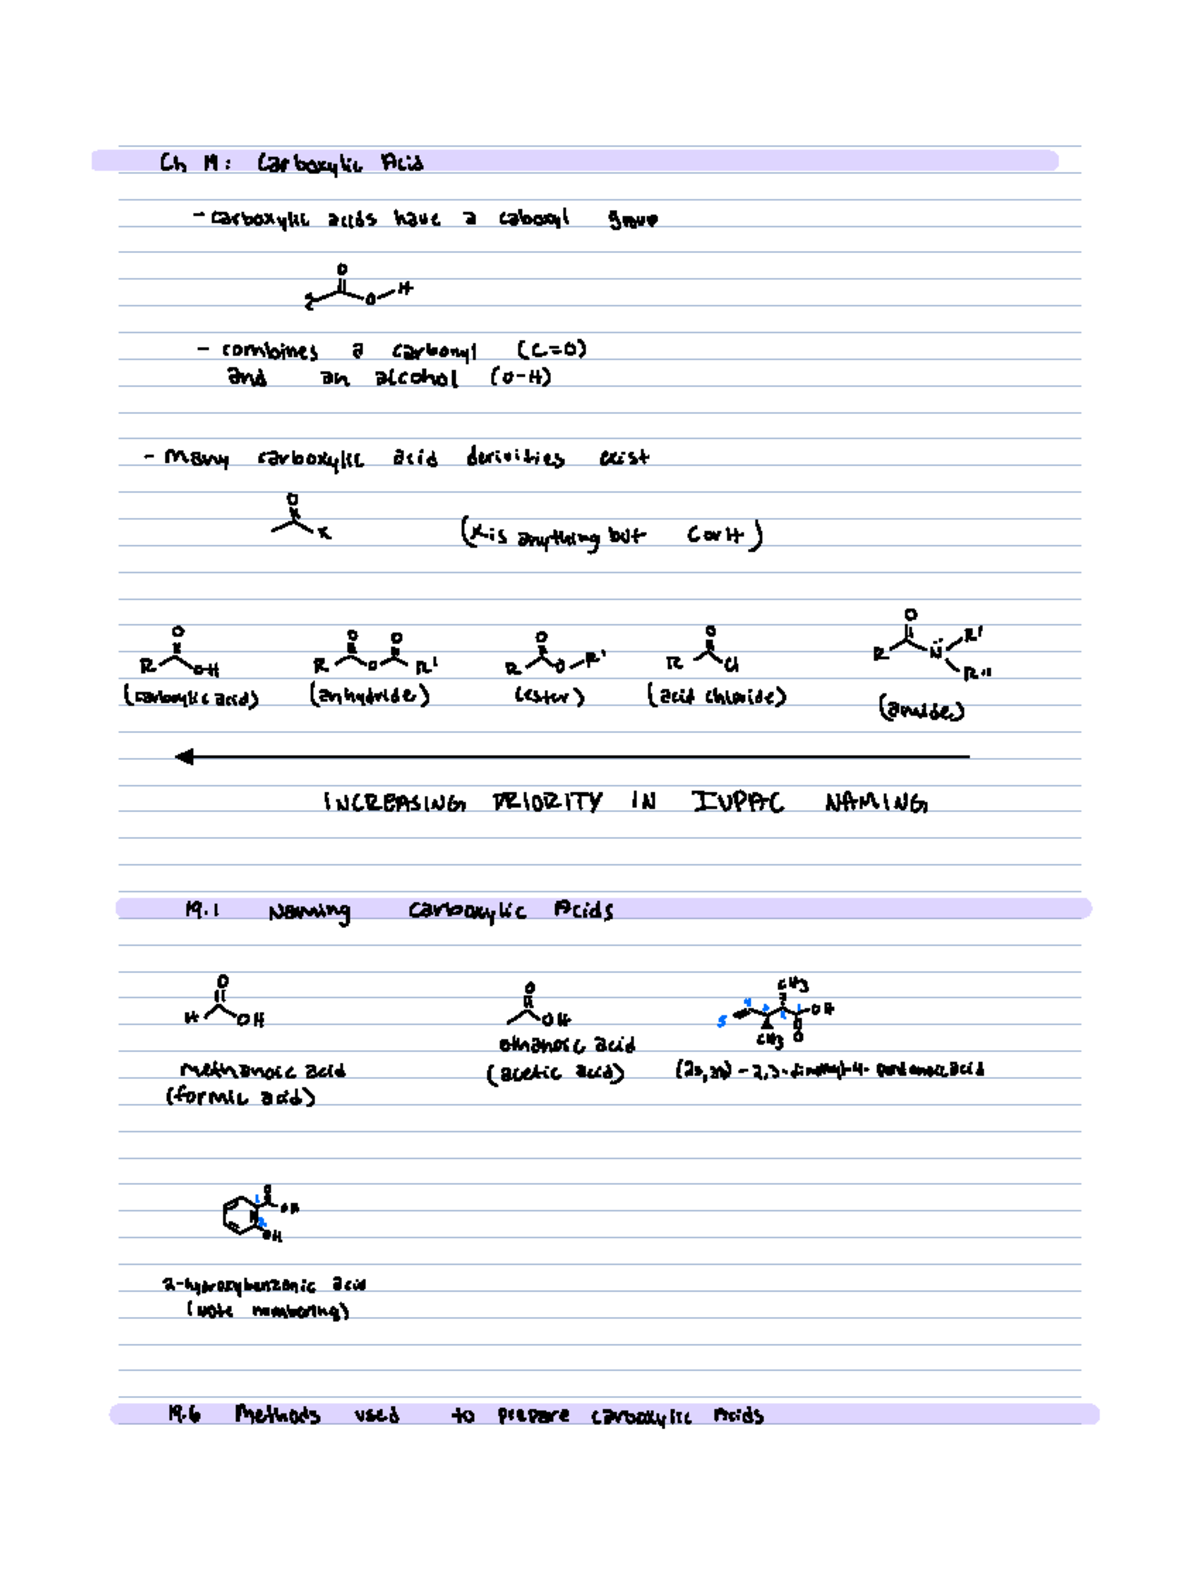 Ch 19: Carboxylic Acid
- carboxylic acids have a caboxyl group
O
O H
- combines a carbonyl (C=O)
and an alcohol (O-H)
- Many carboxylic acid derivities exist
O
X
(X is anything but C or H)
O O O O O O
R OH R O R' R O R' R Cl R N R' R"
(carboxylic acid) (anhydride) (ester) (acid chloride) (amide)
INCREASING PRIORITY IN IUPAC NAMING
19.1 Naming Carboxylic Acids
O O CH3
H OH OH 5 4 3 2 1 OH
CH3 O
methanoic acid ethanoic acid
(formic acid) (acetic acid) -2,3-dimethyl-4-pentenoic acid
O
1 OH
2 OH
2-hydroxybenzonic acid
(note numbering)
19.6 Methods used to prepare carboxylic Acids